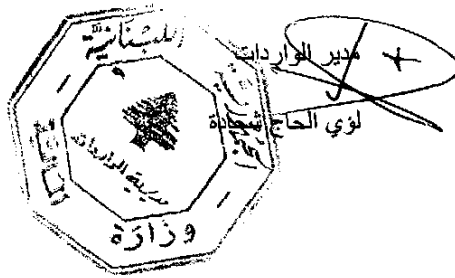 مدير الواردات
لؤي الحاج شحادة
الجمهورية
اللبنانية
وزارة
المالية
مديرية الواردات